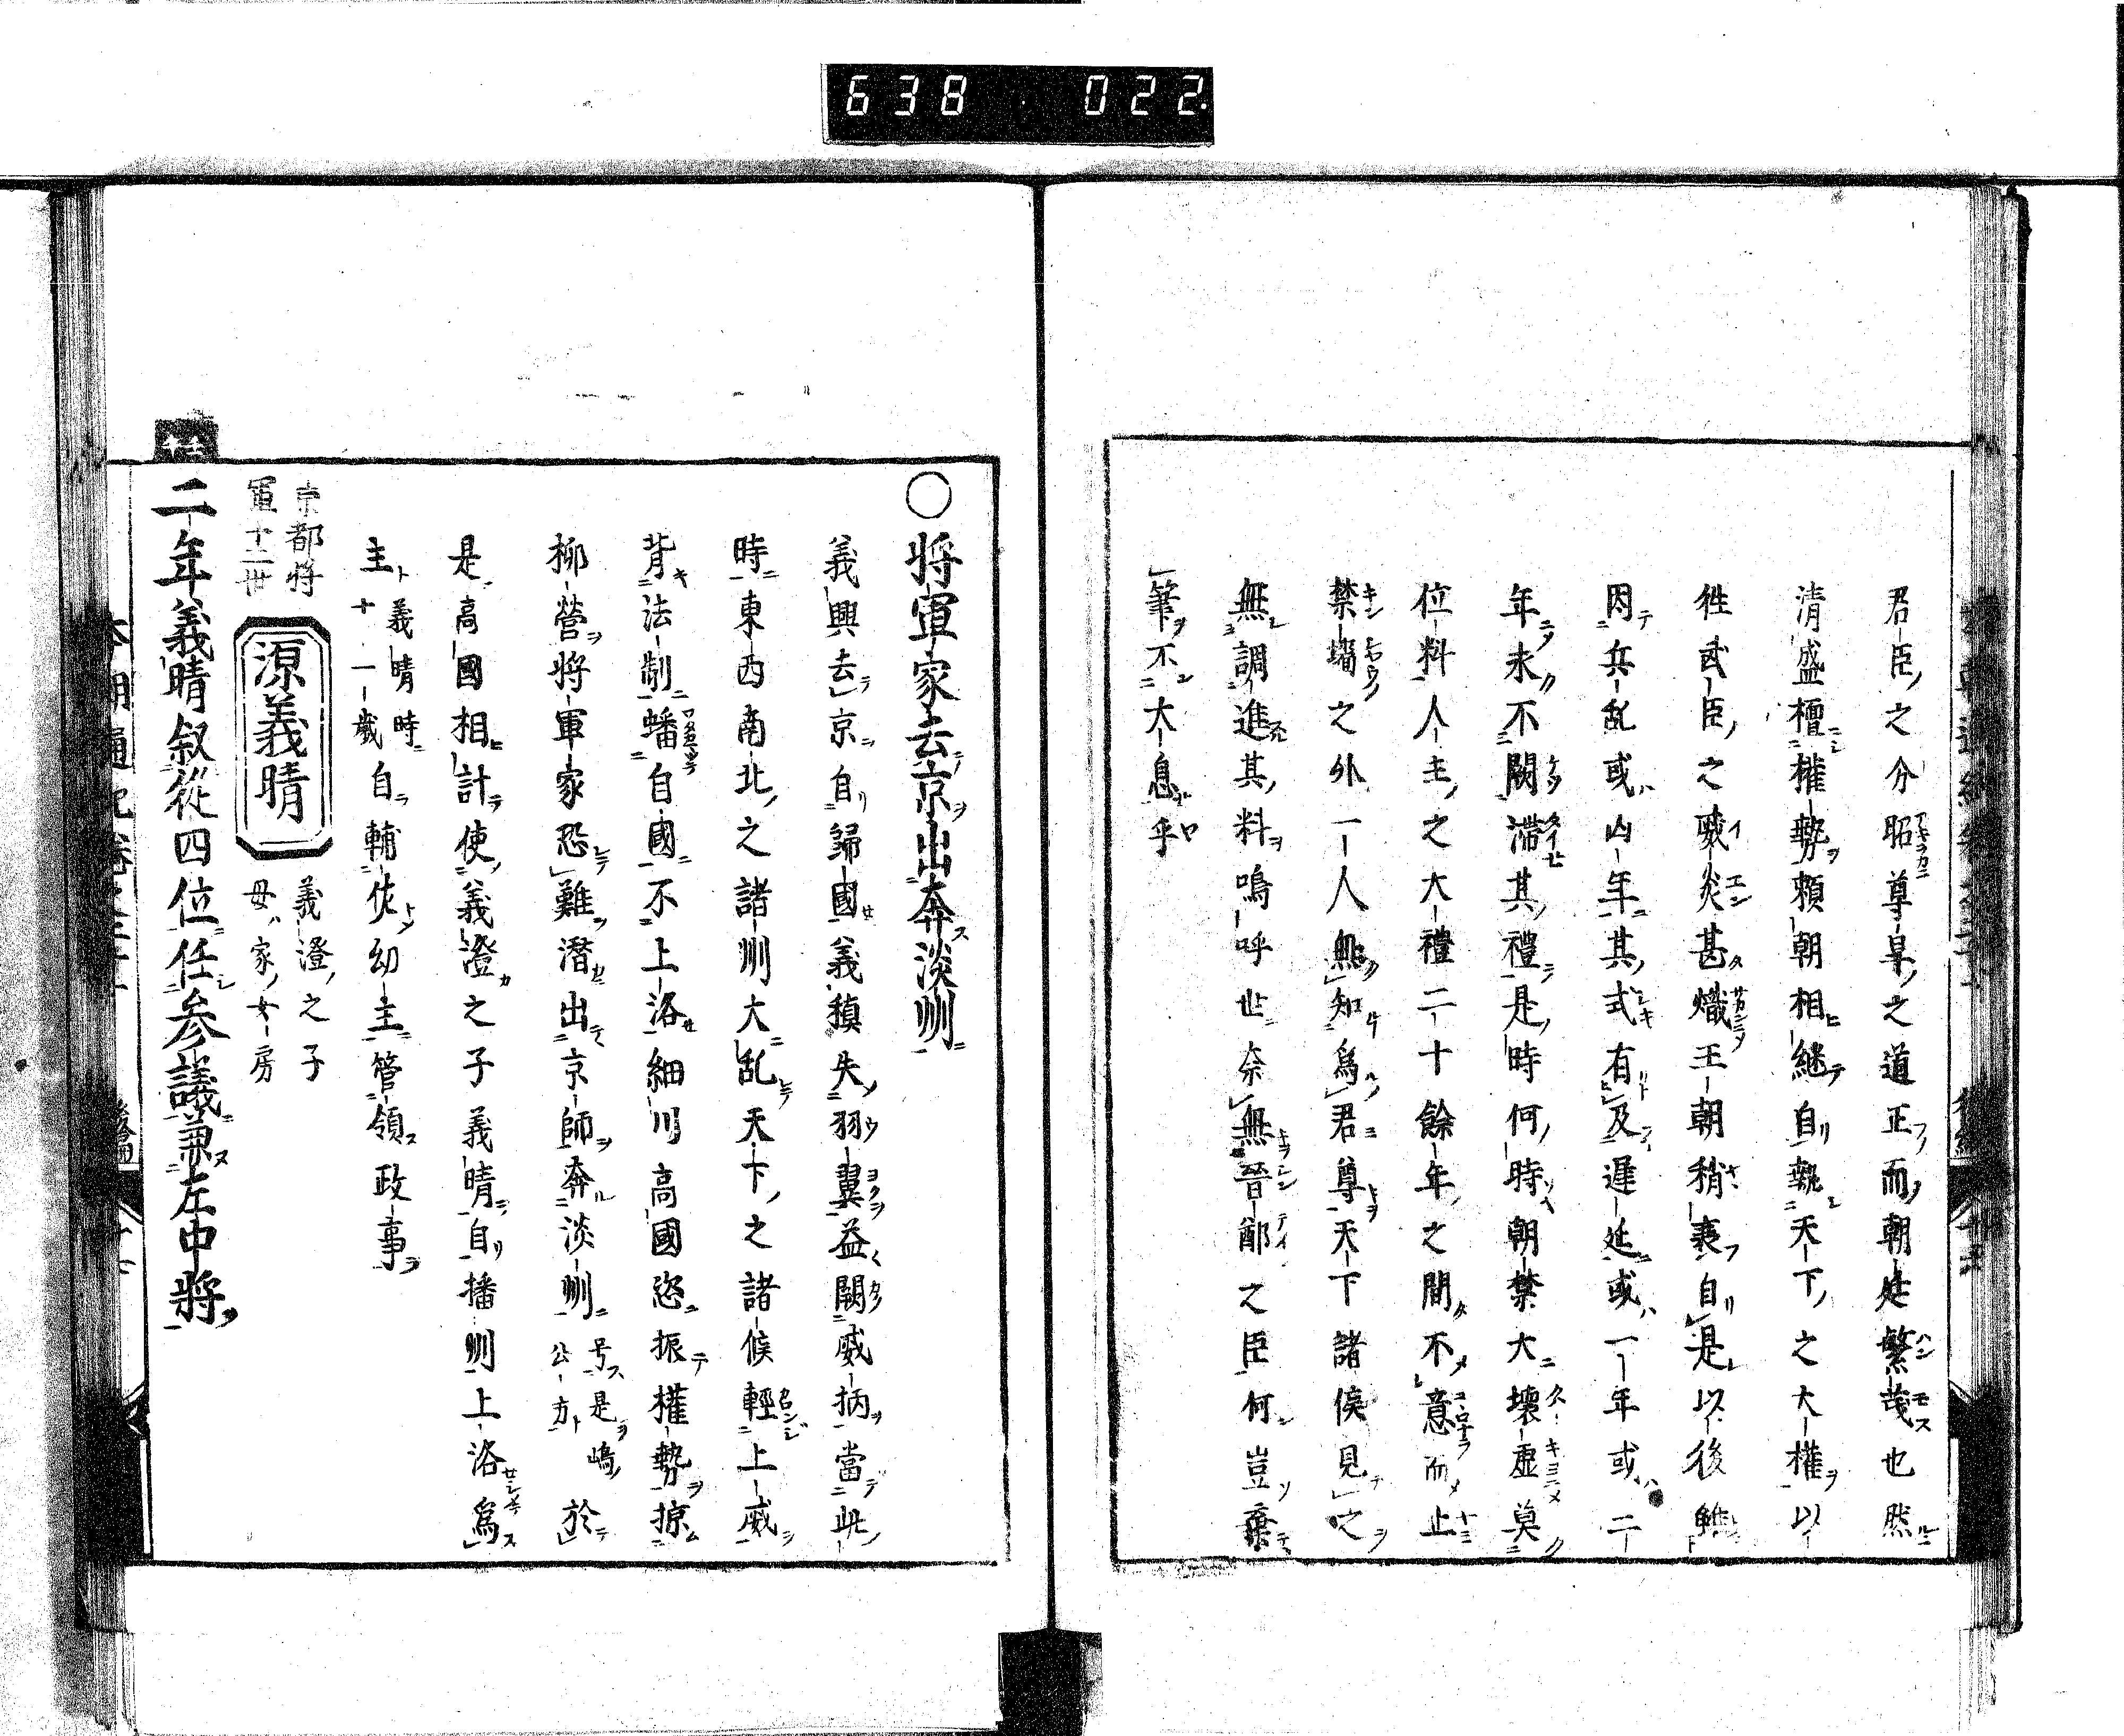 638 022
君臣之分昭尊卑之道正而朝廷繁茂也然
清盛檀權勢賴朝相継自執天下之大權以
徃武臣之威炎甚熾王朝稍衰自是以後
因兵乱或凶年其式有及遅延或一年或二
年永不闕滯其禮是時何時朝禁大壊虚莫
位料人主之大禮二十餘年之間不意而止
禁墻之外一人無知爲君尊天下諸侯見之
無調進其料嗚呼世奈無晉鄭之臣何豈棄
筆不大息乎
○將軍家去京出奔淡州
義興去京自歸國義稙失羽翼益闕威柄當此
時東西南北之諸州大乱天下之諸侯輕上威
背法制蟠自國不上洛細川高國恣振權勢掠
柳營將軍家恐難潜出京師奔淡州号是嶋公方於
是高國相計使義澄之子義晴自播州上洛爲
主義晴時十一歳自輔佐幼主管領政事
京都將軍十二世
源義晴
義澄之子
母家女房
二年義晴叙從四位任参議兼左中將